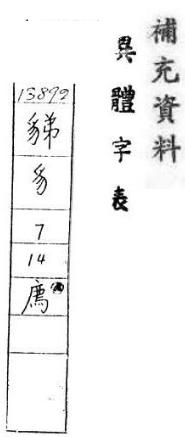 補充資料
異體字表
13899
𧳋
豸
7
14
廌